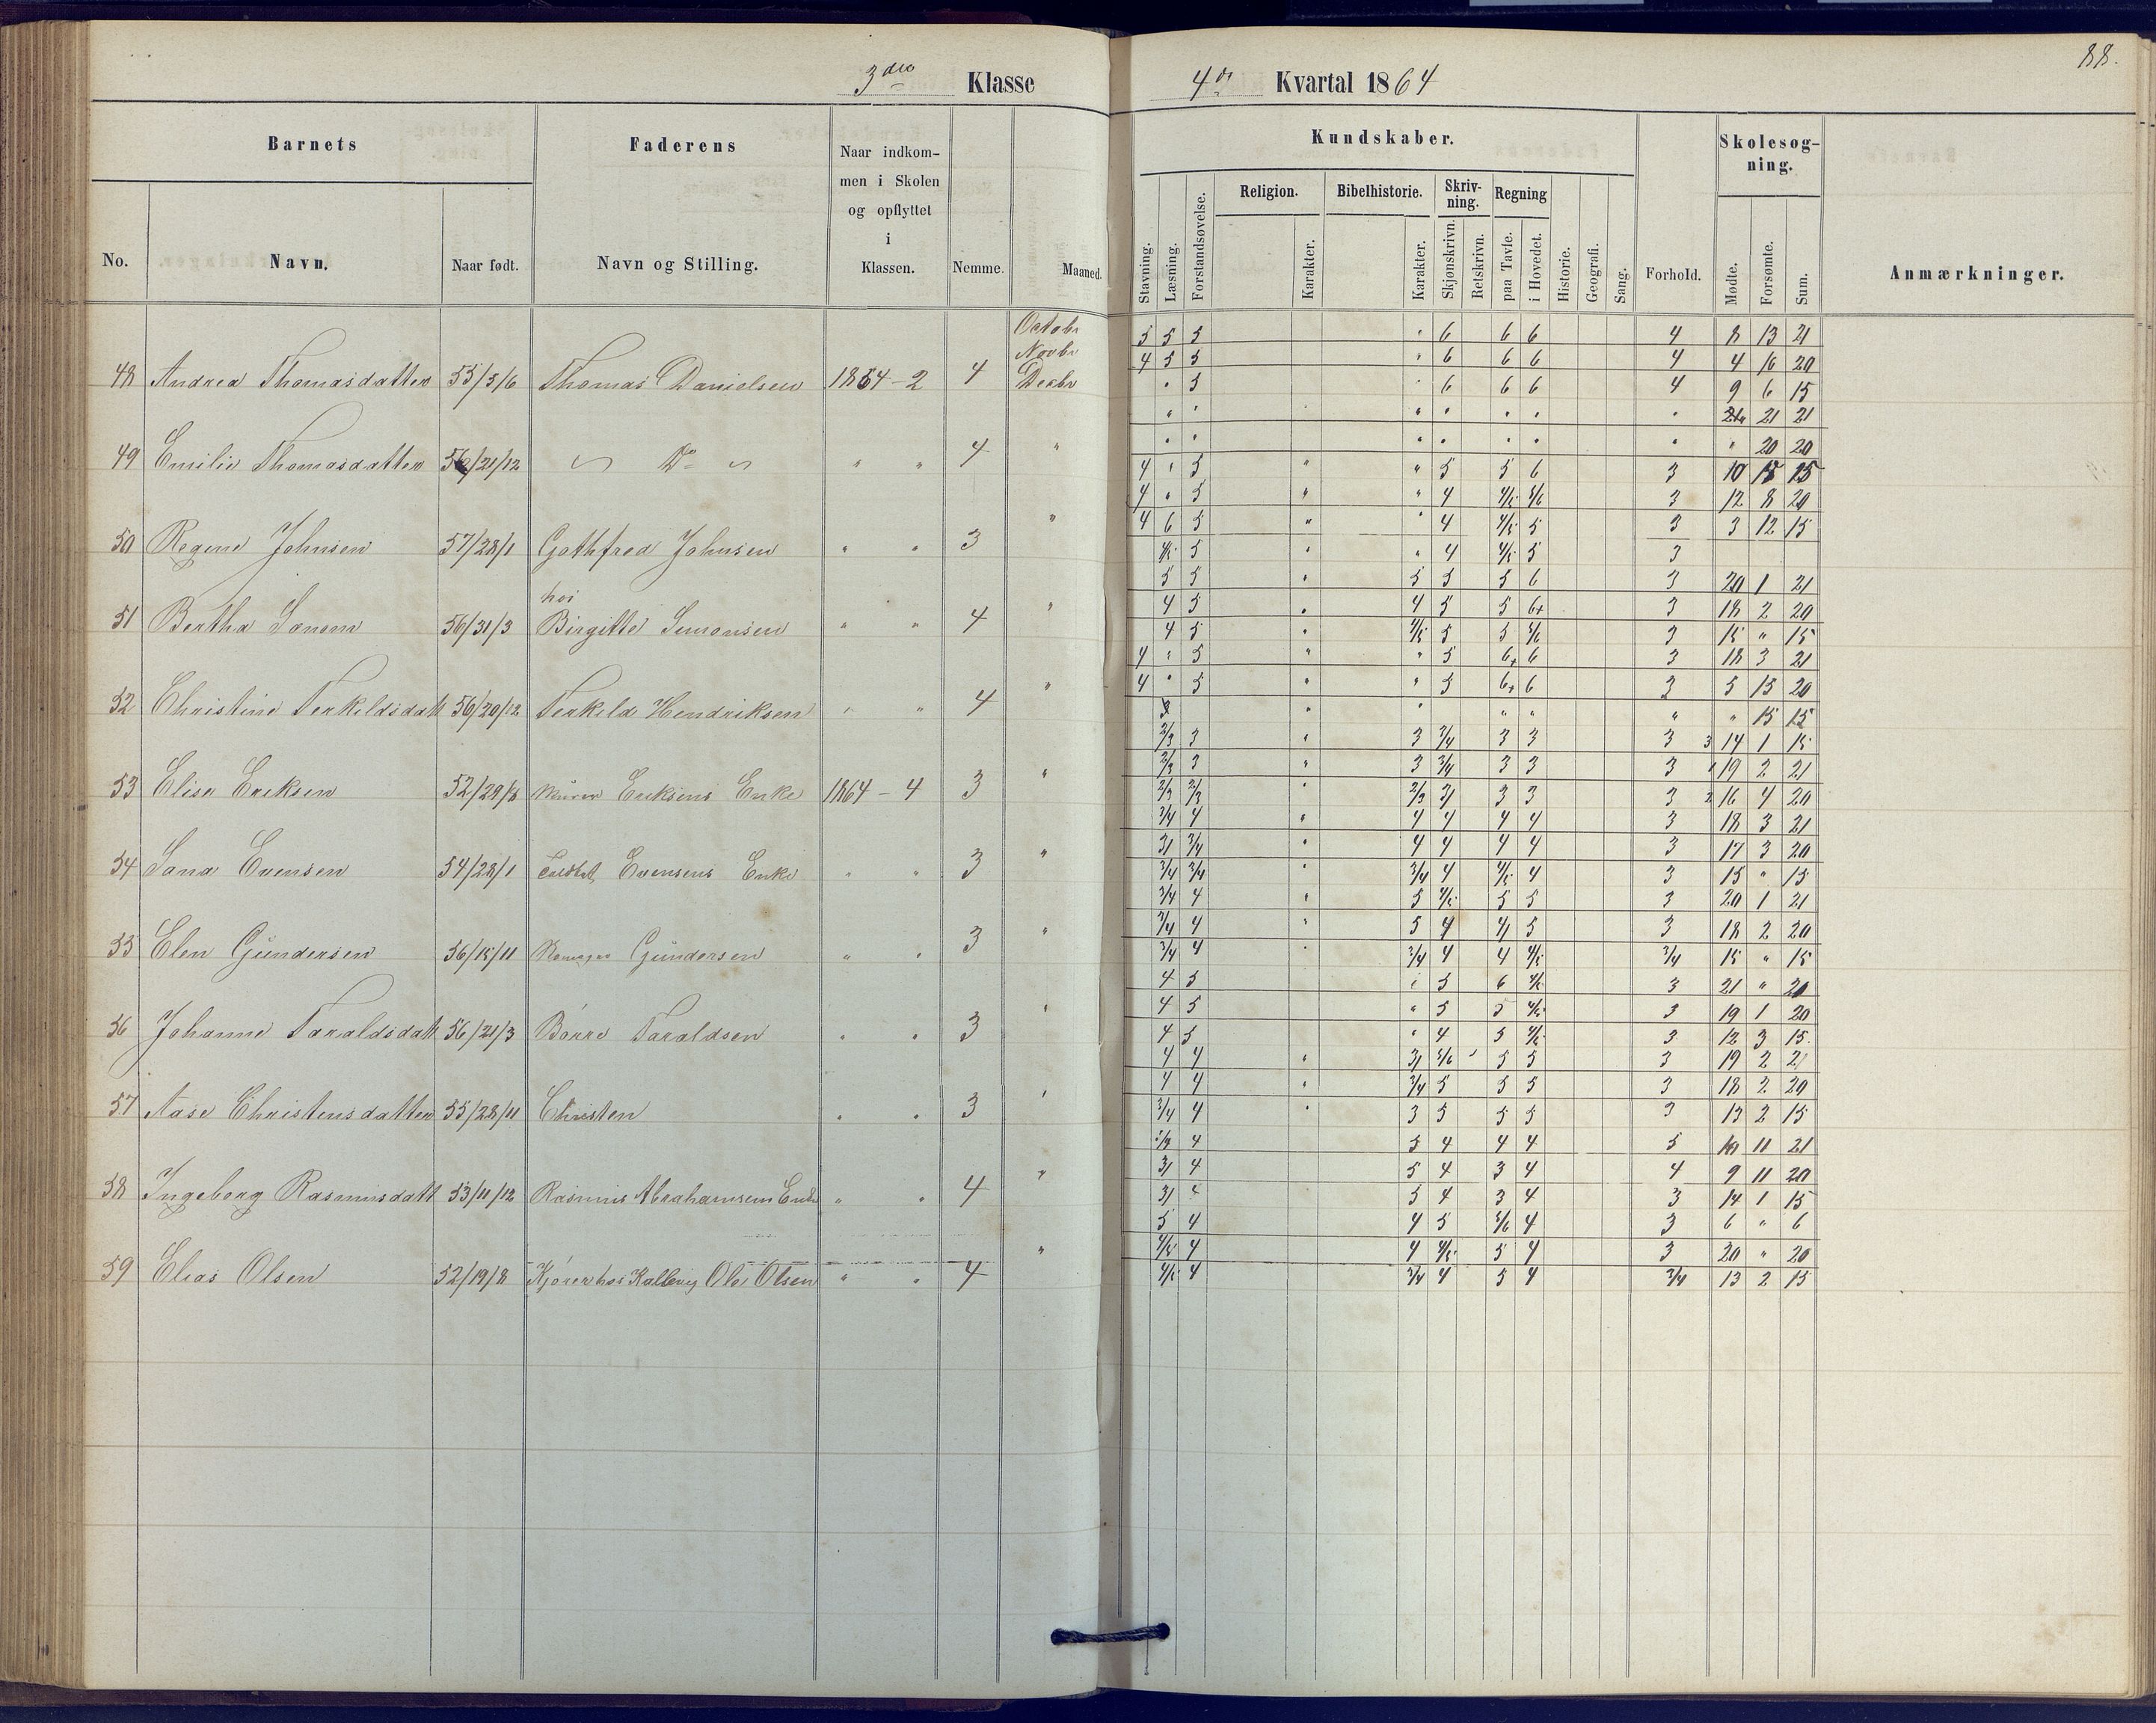 88.
3die Klasse
4de Kvartal 1864
Barnets
Faderens
Naar indkom-
men i Skolen
og opflyttet
i
Klassen.
Nemme.
Maaned.
No.
Navn.
Naar født.
Navn og Stilling.
Kundskaber.
Stavning.
Læsning.
Forstandsøvelse.
Religion.
Karakter.
Bibelhistorie.
Karakter.
Skriv-
ning.
Skjønskrivn.
Retskrivn.
Regning
paa Tavle.
i Hovedet.
Historie.
Geografi.
Sang.
Forhold.
Skolesøg-
ning.
Mødte.
Forsømte.
Sum.
Anmærkninger.
Octobr
Novbr
48 Andrea Thomasdatter 55/5/6 Thomas Danielsen 1864-2 4 Decbr
49 Emilie Thomasdatter 56/21/12 Do " " 4 "
50 Regine Johnsen 57/28/1 Gothfred Johnsen " " 3 "
hos
51 Bertha 56/31/3 Birgitte Simonsen " " 4 "
52 Christine Terkildsdatt 56/20/12 Terkild Hendriksen " " 4 "
53 Elise Eriksen 52/29/8 Murer Eriksens Enke 1864-4 3 "
54 Evensen 54/28/1 Evensens Enke " " 3 "
55 Elen Gundersen 56/15/11 Gundersen " " 3 "
56 Johanne Taraldsdatt 56/21/3 Børre Taraldsen " " 3 "
57 Aase Christensdatter 55/28/11 Christen " " 3 "
58 Ingeborg Rasmusdatt 53/11/12 Rasmus Abrahamsens Enke " " 4 "
59 Elias Olsen 52/19/8 Kjører hos Kallevig Ole Olsen " " 4 "
5 5 5 " 6 6 6 4 8 13 21
4 5 5 " 6 6 6 4 4 16 20
" 5 " 6 6 6 4 9 6 15
" " " " " " " 21 21
" " " " " " " " 20 20
4 " 5 " " 5 5 6 3 10 15
4 " 5 " " 4 4/5 5/6 3 12 8 20
4 6 5 " " 4 4/5 5 3 3 12 15
4/5 5 " " 4 4/5 5 3
5 5 " 5 5 5 6 3 20 1 21
4 5 " 4 5 5 6+ 3 18 2 20
4 5 " 4/5 5 5 5/6 3 15 " 15
4 " 5 " " 5 6+ 6 3 18 3 21
4 " 5 " " 5 6+ 6 3 5 15 20
" " " " " " 15 15
2/3 3 " 3 3/4 3 3 3 3 14 1 15
2/3 3 " 3 3/4 3 3 3 19 2 21
2/3 2/3 " 2/3 3/ 3 3 3 2 16 4 20
3/4 4 " 4 4 4 4 3 18 3 21
3/ 3/4 " 4 4 4 4 3 17 3 20
3/4 3/4 " 3/4 4 4/5 4 3 15 " 15
3/4 4 " 5 4/5 5 5 3 20 1 21
3/4 4 " 5 4 4/ 5 3 18 2 20
3/4 4 " 3/4 4 4 4/5 3/4 15 " 15
4 5 " 5 6 4/5 3 21 " 20
4 5 " 5 5 4/5 3 19 1 20
4 5 " 4 5 4/5 3 12 3 15
4 4 " 3/ 5/6 5 5 3 19 2 21
4 4 " 3/4 5 5 5 3 18 2 20
3/4 4 " 3 5 5 5 3 13 2 15
4 5 4 4 4 5 10 11 21
3/ 4 5 4 3 4 4 9 11 20
3/ 4 5 4 3 4 3 14 1 15
5 4 4 5 5/6 4 3 6 " 6
4/5 4 4 4/5 5 4 3 20 " 20
4/5 4 3/4 4 5 4 3/4 13 2 15